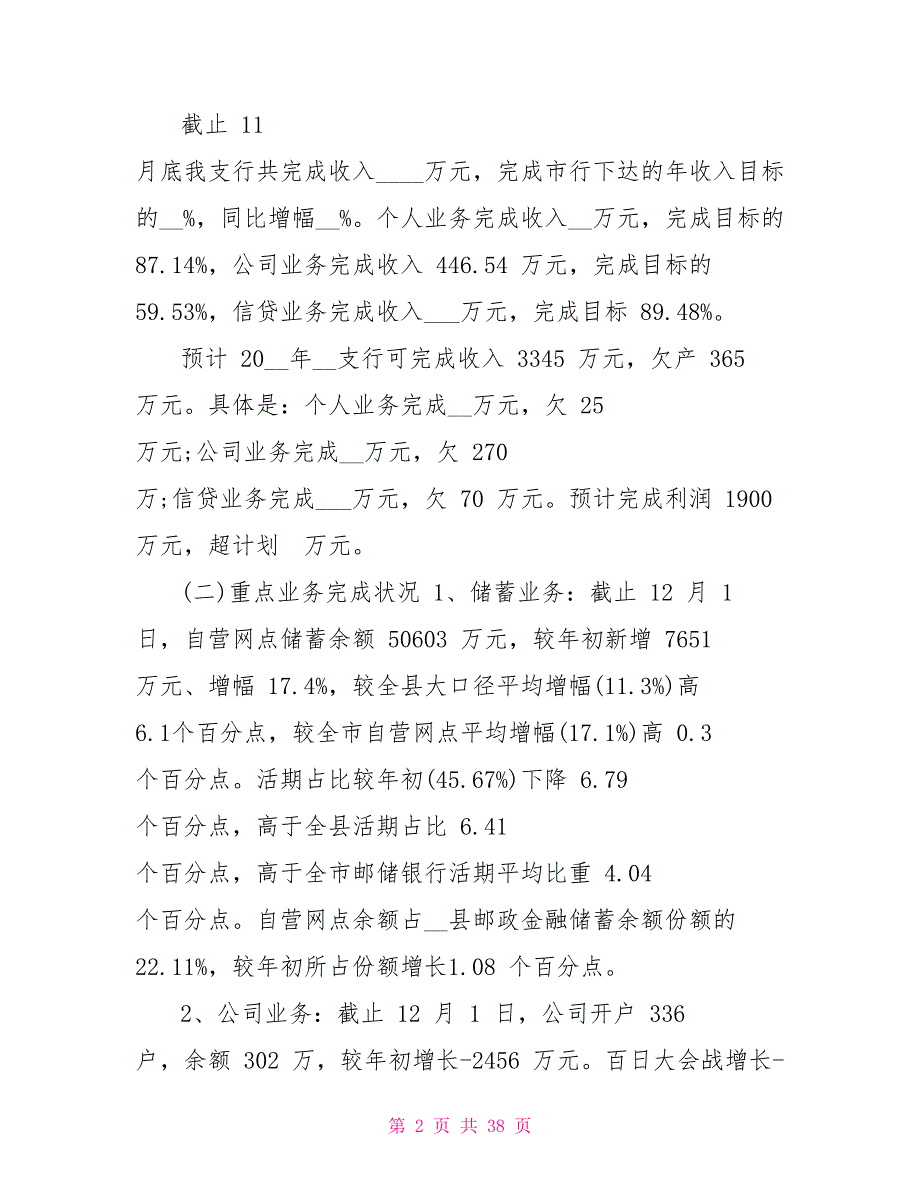 截止 11
月底我支行共完成收入____万元，完成市行下达的年收入目标
的__%，同比增幅__%。个人业务完成收入__万元，完成目标的
87.14%，公司业务完成收入 446.54 万元，完成目标的
59.53%，信贷业务完成收入___万元，完成目标 89.48%。
预计 20__年__支行可完成收入 3345 万元，欠产 365
万元。具体是：个人业务完成__万元，欠 25
万元;公司业务完成__万元，欠 270
万;信贷业务完成___万元，欠 70 万元。预计完成利润 1900
万元，超计划　万元。
(二)重点业务完成状况 1、储蓄业务：截止 12 月 1
日，自营网点储蓄余额 50603 万元，较年初新增 7651
万元、增幅 17.4%，较全县大口径平均增幅(11.3%)高
6.1个百分点，较全市自营网点平均增幅(17.1%)高 0.3
个百分点。活期占比较年初(45.67%)下降 6.79
个百分点，高于全县活期占比 6.41
个百分点，高于全市邮储银行活期平均比重 4.04
个百分点。自营网点余额占__县邮政金融储蓄余额份额的
22.11%，较年初所占份额增长1.08 个百分点。
2、公司业务：截止 12 月 1 日，公司开户 336
户，余额 302 万，较年初增长-2456 万元。百日大会战增长-
第 2 页 共 38 页